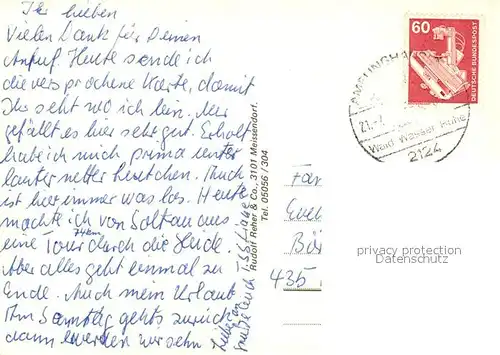 Ihr Lieben
Vielen Dank für Deinen
Anruf. Heute sende ich
die versprochene Karte, damit
Ihr seht wo ich bin. Mir
gefällt es hier sehr gut. Erholt
habe ich mich prima unter
lauter netter Leutchen. Auch
ist hier immer was los. Heute
machte ich von Soltau aus
eine Tour durch die Heide.
Aber alles geht einmal zu
Ende. Auch mein Urlaub
Am Samstag gehts zurück
dann werden wir sehn
Rudolf Reher & Co., 3101 Meissendorf.
Tel. 05056 / 304
60
DEUTSCHE BUNDESPOST
AMELINGHAUSEN
21.-7.
Wald Wasser Ruhe
2124
435
privacy protection
Datenschutz